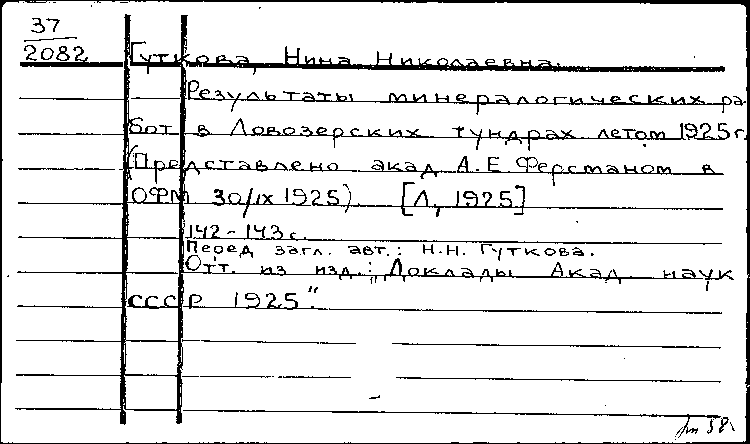 37
2082
Гуткова, Нина Николаевна.
Результаты минералогических ра
бот в Ловозерских тундрах летом 1925 г.
(Представлено акад А. Е. Ферсманом в
ОФМ 30/IX 1925). [Л, 1925]
142-143 с.
Перед загл. авт.: Н.Н. Гуткова.
Отт. из изд.: „Доклады Акад. наук
СССР 1925".
58